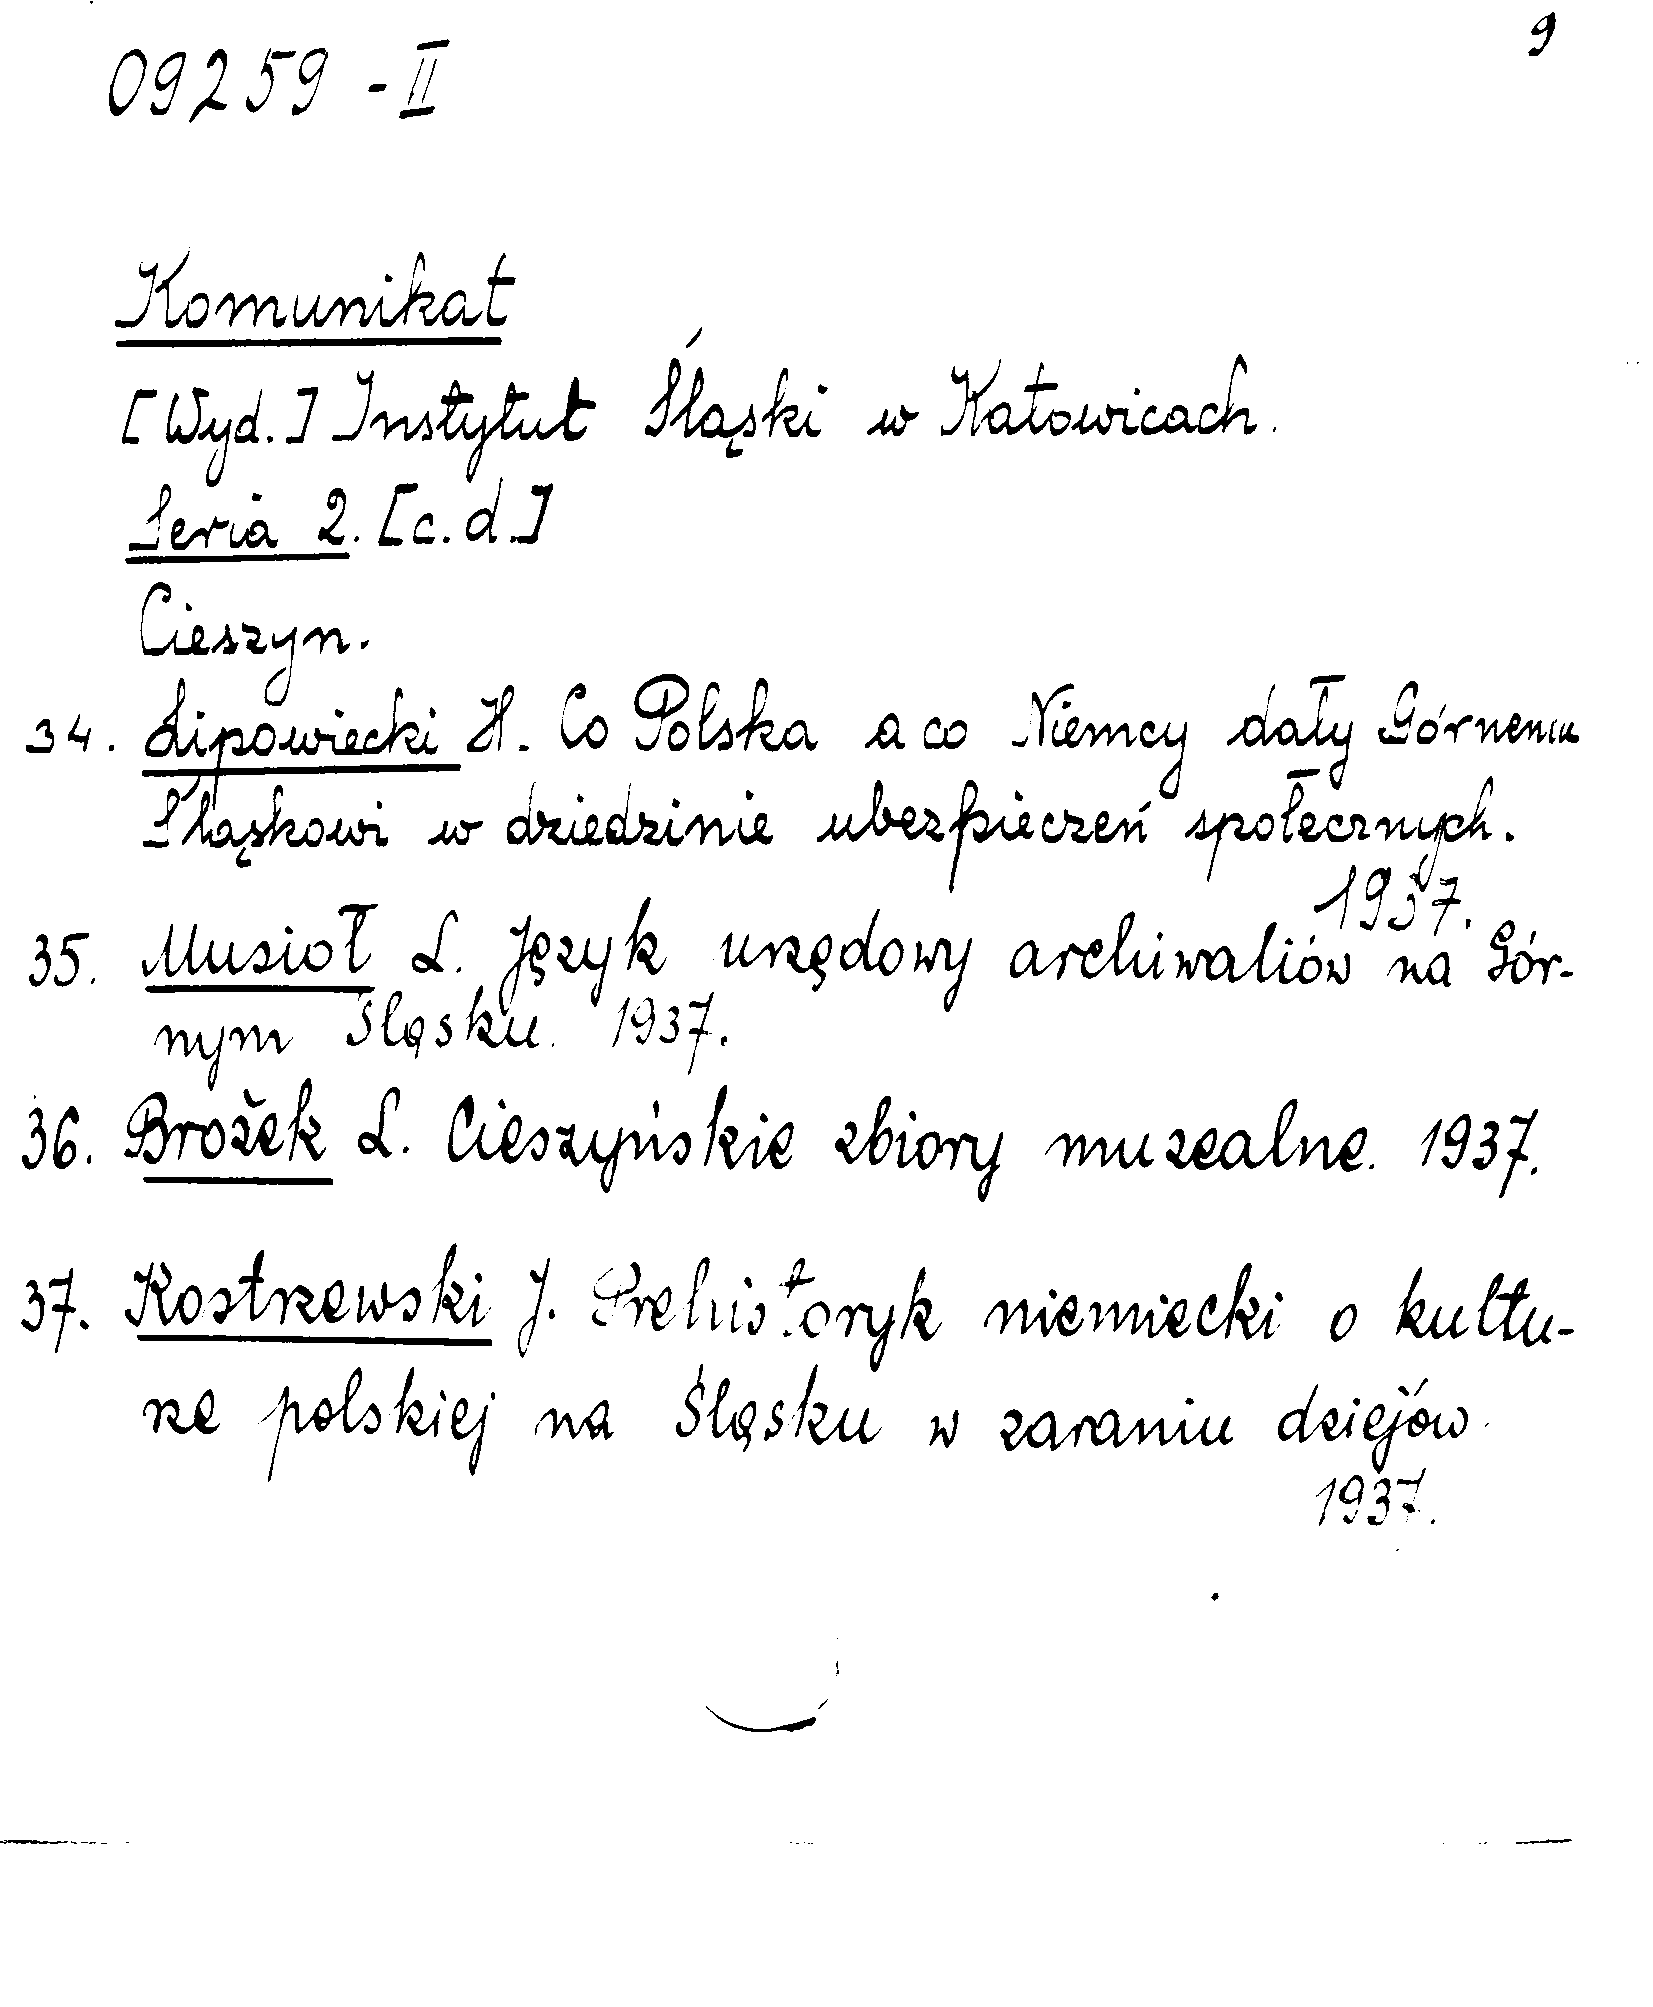 9
09259 - II
Komunikat
[Wyd.] Instytut Śląski w Katowicach.
Seria 2. [c.d.]
Cieszyn.
34. Lipowiecki H. Co Polska a co Niemcy dały Górnemu
Śląskowi w dziedzinie ubezpieczeń społecznych.
1937.
35. Musioł L. Język urzędowy archiwaliów na Gór-
nym Śląsku. 1937.
36. Brożek L. Cieszyńskie zbiory muzealne. 1937.
37. Kostrzewski J. Prehistoryk niemiecki o kultu-
rze polskiej na Śląsku w zaraniu dziejów.
1937.